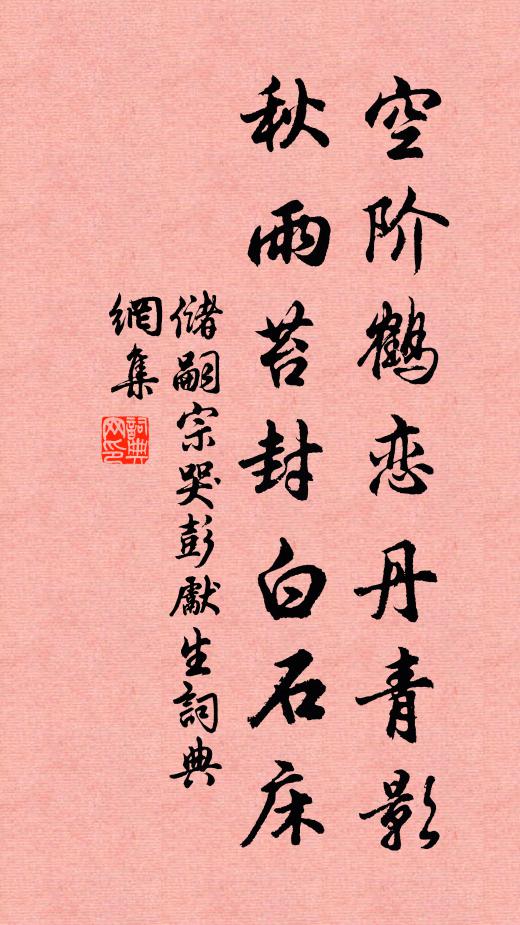 空阶鹤恋丹青影
秋雨苔封白石床
储嗣宗哭彭獻生詞典
網集
詞典
网印